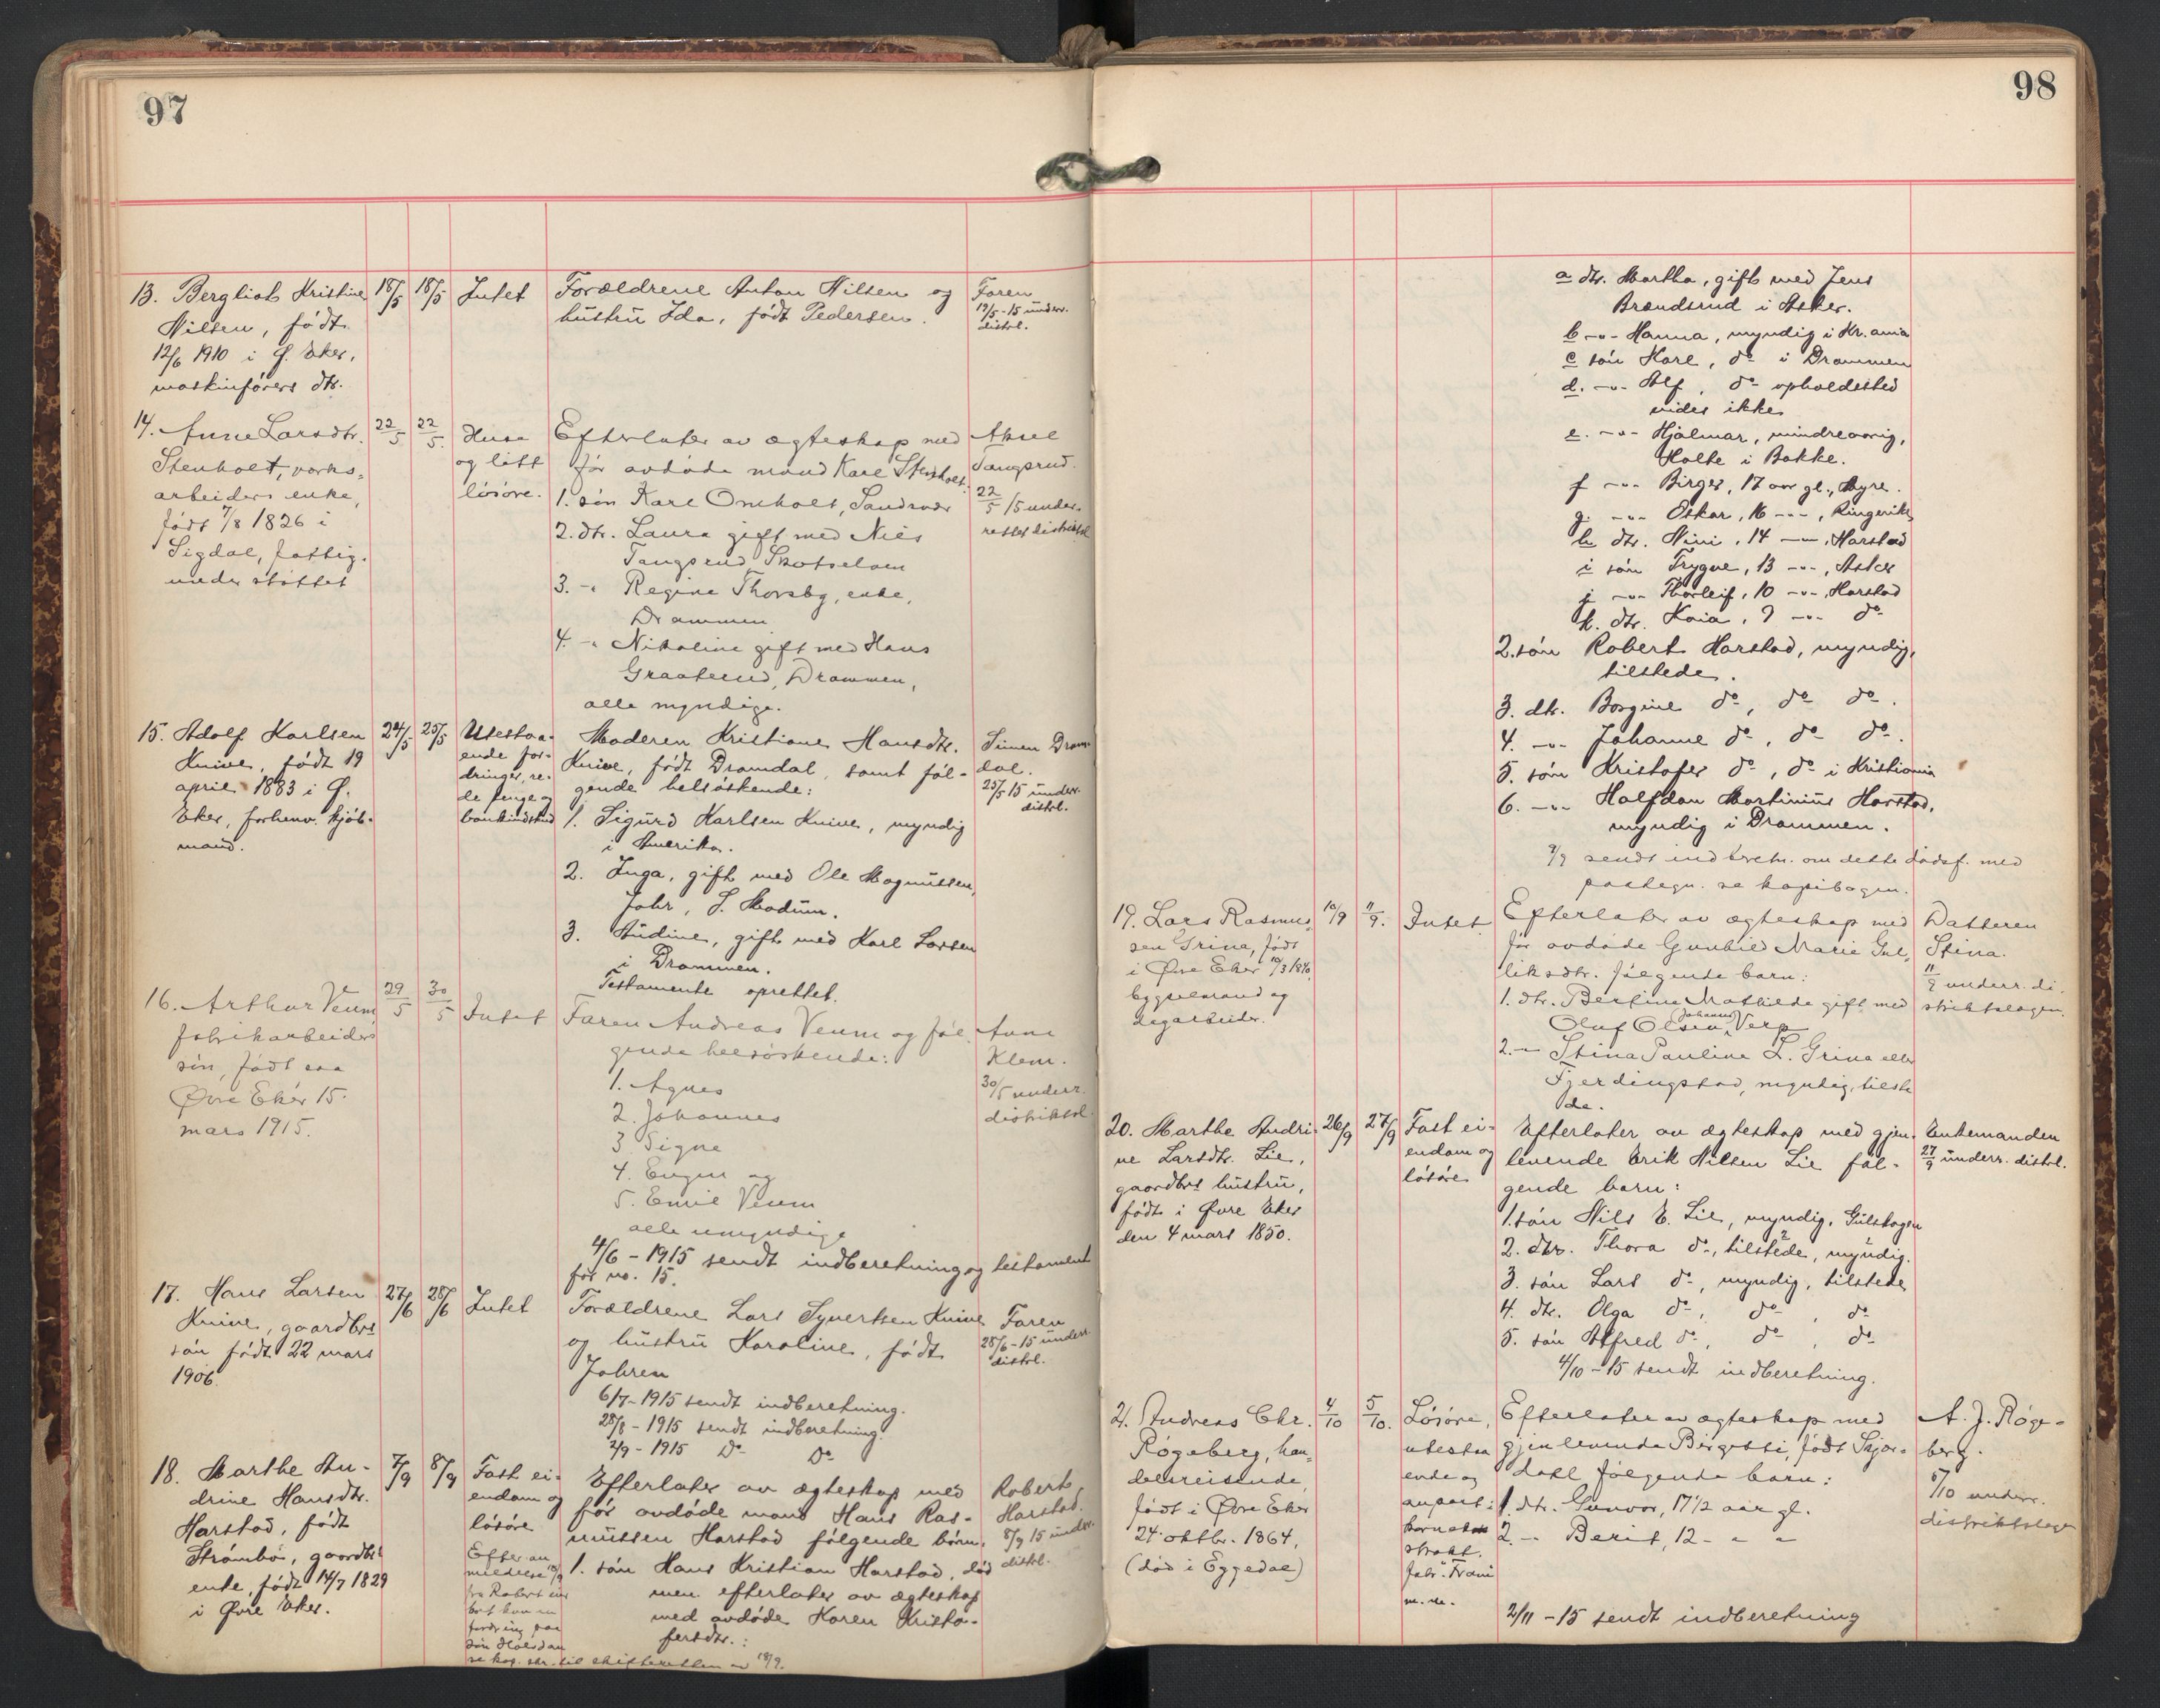 97
13. Bergliot Kristine
Nilsen, født
12/6 1910 i Ø. Eker,
maskinførers dtr.
18/5
18/5
Intet
Forældrene Anton Nilsen og
hustru Ida, født Pedersen.
Faren
19/5-15 underr.
distrl.
14. Anne Larsdtr.
Stenholt, verks-
arbeiders enke,
født 7/8 1826 i
Sigdal, fattig-
understøttet
22/5
22/5.
Huse
og litt
løsøre.
Efterlater av ægteskap med
før avdøde mand Karl Stenholt:
1. søn Karl Omholt,
2. dtr. Laura gift med Nils
Tangsrud, Skotselven
3. -"- Regine Thorsby, enke,
Drammen
4. -"- Nikoline gift med Hans
Graaterud, Drammen,
alle myndige.
Aksel
Tangsrud.
22/5 15 under-
rettet distriktsl.
15. Adolf Karlsen
Knive, født 19
april 1883 i Ø.
Eker, forhenv. kjøb-
mand.
24/5
25/5
Utestaa-
ende for-
dringer, re-
de penge og
bankindskud
Moderen Kristiane Hansdtr.
Knive, født Dramdal, samt føl-
gende helsøskende:
1. Sigurd Karlsen Knive, myndig
i Amerika.
2. Inga, gift med Ole Magnussen,
Jahr, S. Modum.
3. Audine, gift med Karl Larsen
i Drammen.
Testamente oprettet.
Simen Dram-
dal.
25/5 15 underr.
distrl.
16. Arthur Veum
fabrikarbeiders
søn, født paa
Øvre Eker 15.
mars 1915.
29/5
30/5
Intet
Faren Andreas Veum og føl-
gende helsøskende:
1. Agnes
2. Johannes
3 Signe
4. Eugen og
5. Emil Veum
alle umyndige
4/6 - 1915 sendt indberetning og testament
for no. 15.
Anne
Klem.
30/5 underr.
distriktsl.
17. Hans Larsen
Knive, gaardbrs
søn født 22 mars
1906
27/6
28/6
Intet
Forældrene Lars Syvertsen Knive
og hustru Karoline, født
Jahren
6/7-1915 sendt indberetning.
28/8 - 1915 sendt indberetning.
2/9 - 1915 Do Do
Faren
28/6-15 underr.
distrl.
18. Marthe An-
drine Hansdtr.
Harstad, født
Strømbo, gaardbr.
enke, født 14/7 1829
i Øvre Eker.
7/9
8/9
Fast ei-
endom og
løsøre
Efter an
meldelse 18/9
fra Robert
fordring paa
søn Halfdan
se kop. skr. til skifteretten av 18/9.
Efterlater av ægteskap med
før avdøde mand Hans Ras-
mussen Harstad følgende børn:
1. søn Hans Kristian Harstad, død
men efterlater av ægteskap
med avdøde Karen Kristo-
fersdtr.:
Robert
Harstad.
8/9 15 underr.
distrl.
98
a dtr. Martha, gift med Jens
Brændsrud i Asker.
b -"- Hanna, myndig i Kr.ania
c søn Karl, do i Drammen
d. -"- Alf, do opholdssted
vides ikke
e. -"- Hjalmar, mindreaarig,
Holte i Bakke.
f -"- Birger, 17 aar gl.,
g. -"- Oskar, 16 -"-, Ringerike
h dtr. Nini, 14 -"-, Harstad
i søn Trygve, 13 -"-, Asker
j -"- Thorleif, 10 -"-, Harstad
k. dtr. Kaia, 9 -"- do
2. søn Robert Harstad, myndig,
tilstede.
3. dtr. Borgine do, do do.
4. -"- Johanne do, do do.
5. søn Kristofer do, do i Kristiania
6. -"- Halfdan Martinius Harstad,
myndig i Drammen.
9/9 sendt indberetn. om dette dødsf. med
paategn. se kopibogen.
19. Lars Rasmus-
sen Grina, født
i Øvre Eker 10/3 1840,
bygselmand og
dagarbeider.
10/9
11/9.
Intet
Efterlater av ægteskap med
før avdøde Gunhild Marie Gul-
liksdtr. følgende barn:
1. dtr. Bertine Mathilde gift med
Oluf Olsen Johannes Verp
2. -"- Stina Pauline L. Grina eller
Fjerdingstad, myndig, tilste-
de.
Datteren
Stina.
11/9 underr. di-
striktslagen.
20. Marthe Andri-
ne Larsdtr. Lie,
gaardbrs hustru,
født i Øvre Eker
den 4 mars 1850.
26/9
27/9
Fast ei-
endom og
løsøre
Efterlater av ægteskap med gjen-
levende Erik Nilsen Lie føl-
gende barn:
1. søn Nils E. Lie, myndig, Gulskogen
2. dtr. Thora do, tilstede, myndig.
3. søn Lars do, myndig, tilstede
4. dtr. Olga do, do, do
5. søn Alfred do, do, do
4/10 - 15 sendt indberetning.
Enkemanden
27/9 underr. distrl.
21. Andreas Chr.
Røgeberg, han-
delsreisende,
født i Øvre Eker
24. oktbr. 1864,
(død i Eggedal)
4/10
5/10.
Løsøre,
utestaa
ende og
anpart i
Efterlater av ægteskap med
gjenlevende Birgitte, født Skjør-
dahl følgende barn:
1. dtr. Gunvor, 17 1/2 aar gl.
2. -"- Berit, 12 - " "
2/11 - 15 sendt indberetning
A. J. Røge-
berg.
5/10 underr.
distriktslage